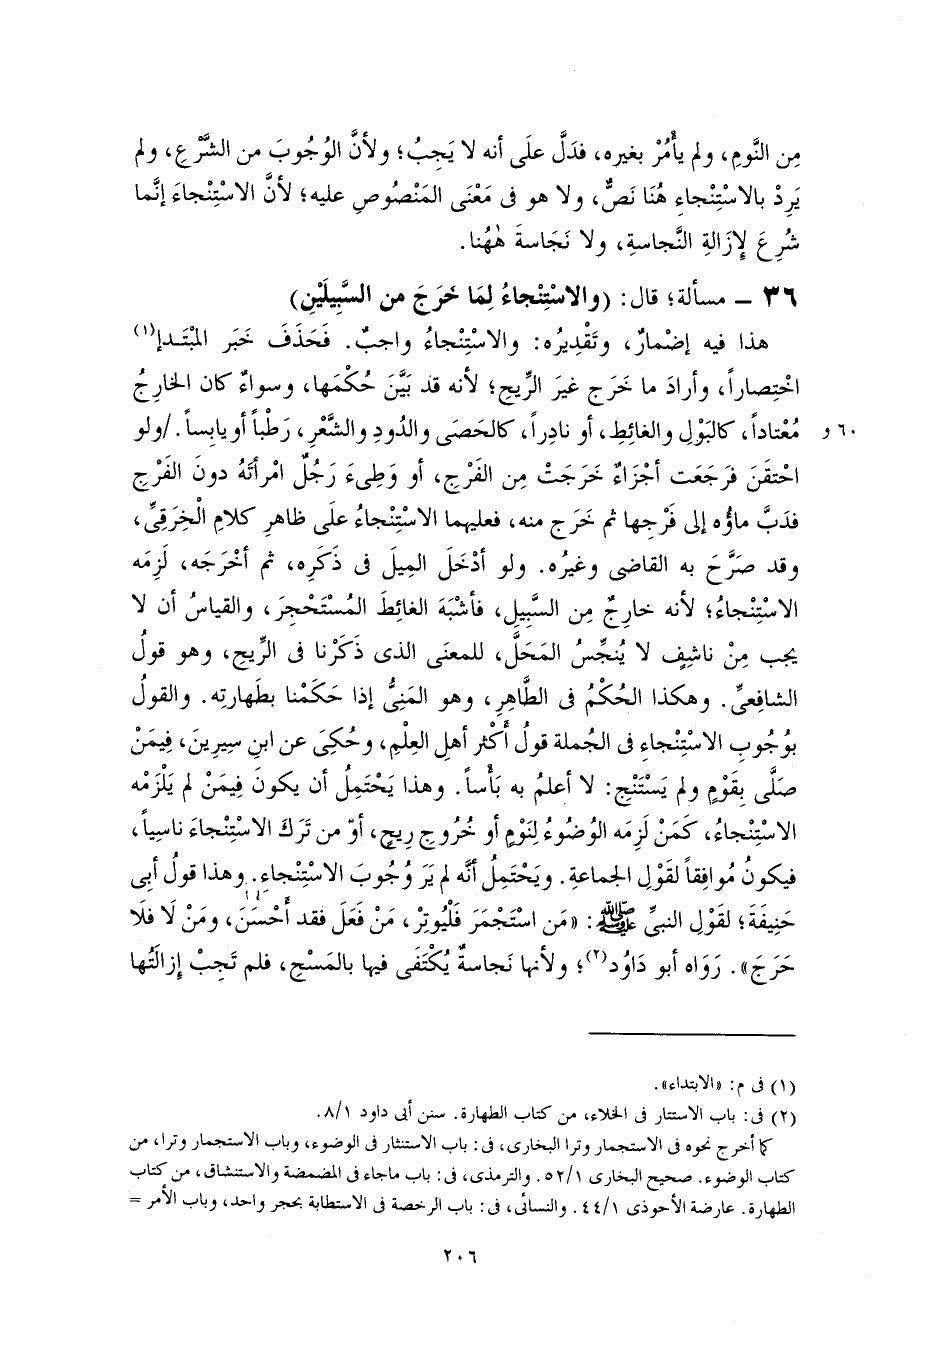 مِن النَّومِ، ولم يأْمُرْ بغيره، فدَلَّ علَى أنه لا يَجِبُ؛ ولأنَّ الوُجُوبَ من الشَّرْعِ، ولم
يَرِدْ بالاسْتِنْجاءِ هُنَا نَصٌّ، ولا هو فى مَعْنَى المَنْصُوصِ عليه؛ لأنَّ الاسْتِنْجاءَ إنَّما
شُرِعَ لإزَالةِ النَّجاسةِ، ولا نَجَاسةَ هٰهُنا.
٣٦ – مسألة؛ قال: (والاسْتِنْجاءُ لِمَا خَرَجَ من السَّبِيلَيْنِ)
هذا فيه إضْمارٌ، وتَقْدِيرُه: والاسْتِنْجاءُ واجبٌ. فَحَذَفَ خَبَر المُبْتَدإِ(١)
اخْتِصاراً، وأرادَ ما خَرَج غيرَ الرِّيحِ؛ لأنه قد بَيَّنَ حُكْمَها، وسواءٌ كان الخارِجُ
مُعْتاداً، كالبَوْلِ والغائِطِ، أو نادِراً، كالحَصَى والدُودِ والشَّعْرِ، رَطْباً أو يابساً. /ولو ٦٠ و
احْتقَنَ فرَجَعَت أجْزَاءٌ خَرَجَتْ مِن الفَرْجِ، أو وَطِىءَ رَجُلٌ امْرأتَهُ دونَ الفَرْجِ
فدَبَّ ماؤُه إلى فَرْجِها ثم خَرَج منه، فعليهما الاسْتِنْجاءُ علَى ظاهرِ كلامِ الْخِرَقِىِّ،
وقد صَرَّحَ به القاضى وغيرُه. ولو أدْخَلَ المِيلَ فى ذَكَرِه، ثم أخْرَجَه، لَزِمَه
الاسْتِنْجاءُ؛ لأنه خارِجٌ مِن السَّبِيلِ، فأشْبَهَ الغائطَ المُسْتَحْجِرَ، والقياسُ أن لا
يجب مِنْ ناشِفٍ لا يُنجِّسُ المَحَلَّ، للمعنَى الذى ذَكَرْنا فى الرِّيحِ، وهو قولُ
الشافِعىِّ. وهكذا الحُكْمُ فى الطَّاهِرِ، وهو المَنِىُّ إذا حَكَمْنا بطَهارتِه. والقولُ
بوُجُوبِ الاسْتِنْجاءِ فى الجُملة قولُ أكْثرِ أهلِ العِلْمِ، وحُكِىَ عن ابنِ سِيرِينَ، فِيمَنْ
صَلَّى بِقَوْمٍ ولم يَسْتَنْجِ: لا أعلمُ به بَأْساً. وهذا يَحْتَمِلُ أن يكونَ فِيمَنْ لم يَلْزَمْه
الاسْتِنْجاءُ، كمَنْ لَزِمَه الوُضُوءُ لِنَوْمٍ أو خُرُوجِ رِيحٍ، أوْ من تَرَكَ الاسْتِنْجاءَ ناسِياً،
فيكونُ مُوافِقاً لقَوْلِ الجماعةِ. ويَحْتَمِلُ أنَّه لم يَرَ وُجُوبَ الاسْتِنْجاءِ. وهذا قولُ أبى
حَنِيفَةَ؛ لقَوْلِ النبىِّ ﷺ: «مَن اسْتَجْمَرَ فَلْيُوتِرْ، مَنْ فَعَلَ فقد أَحْسَنَ، ومَنْ لَا فلَا
حَرَجَ». رَوَاه أبو دَاوُد(٢)؛ ولأنها نَجاسةٌ يُكْتَفَى فيها بالمَسْحِ، فلم تَجِبْ إزالَتُها
(١) فى م: «الابتداء».
(٢) فى: باب الاستتار فى الخلاء، من كتاب الطهارة. سنن أبى داود ٨/١.
كما أخرج نحوه فى الاستجمار وترا البخارى، فى: باب الاستنثار فى الوضوء، وباب الاستجمار وترا، من
كتاب الوضوء. صحيح البخارى ٥٢/١. والترمذى، فى: باب ماجاء فى المضمضة والاستنشاق، من كتاب
الطهارة. عارضة الأحوذى ٤٤/١. والنسائى، فى: باب الرخصة فى الاستطابة بحجر واحد، وباب الأمر =
٢٠٦